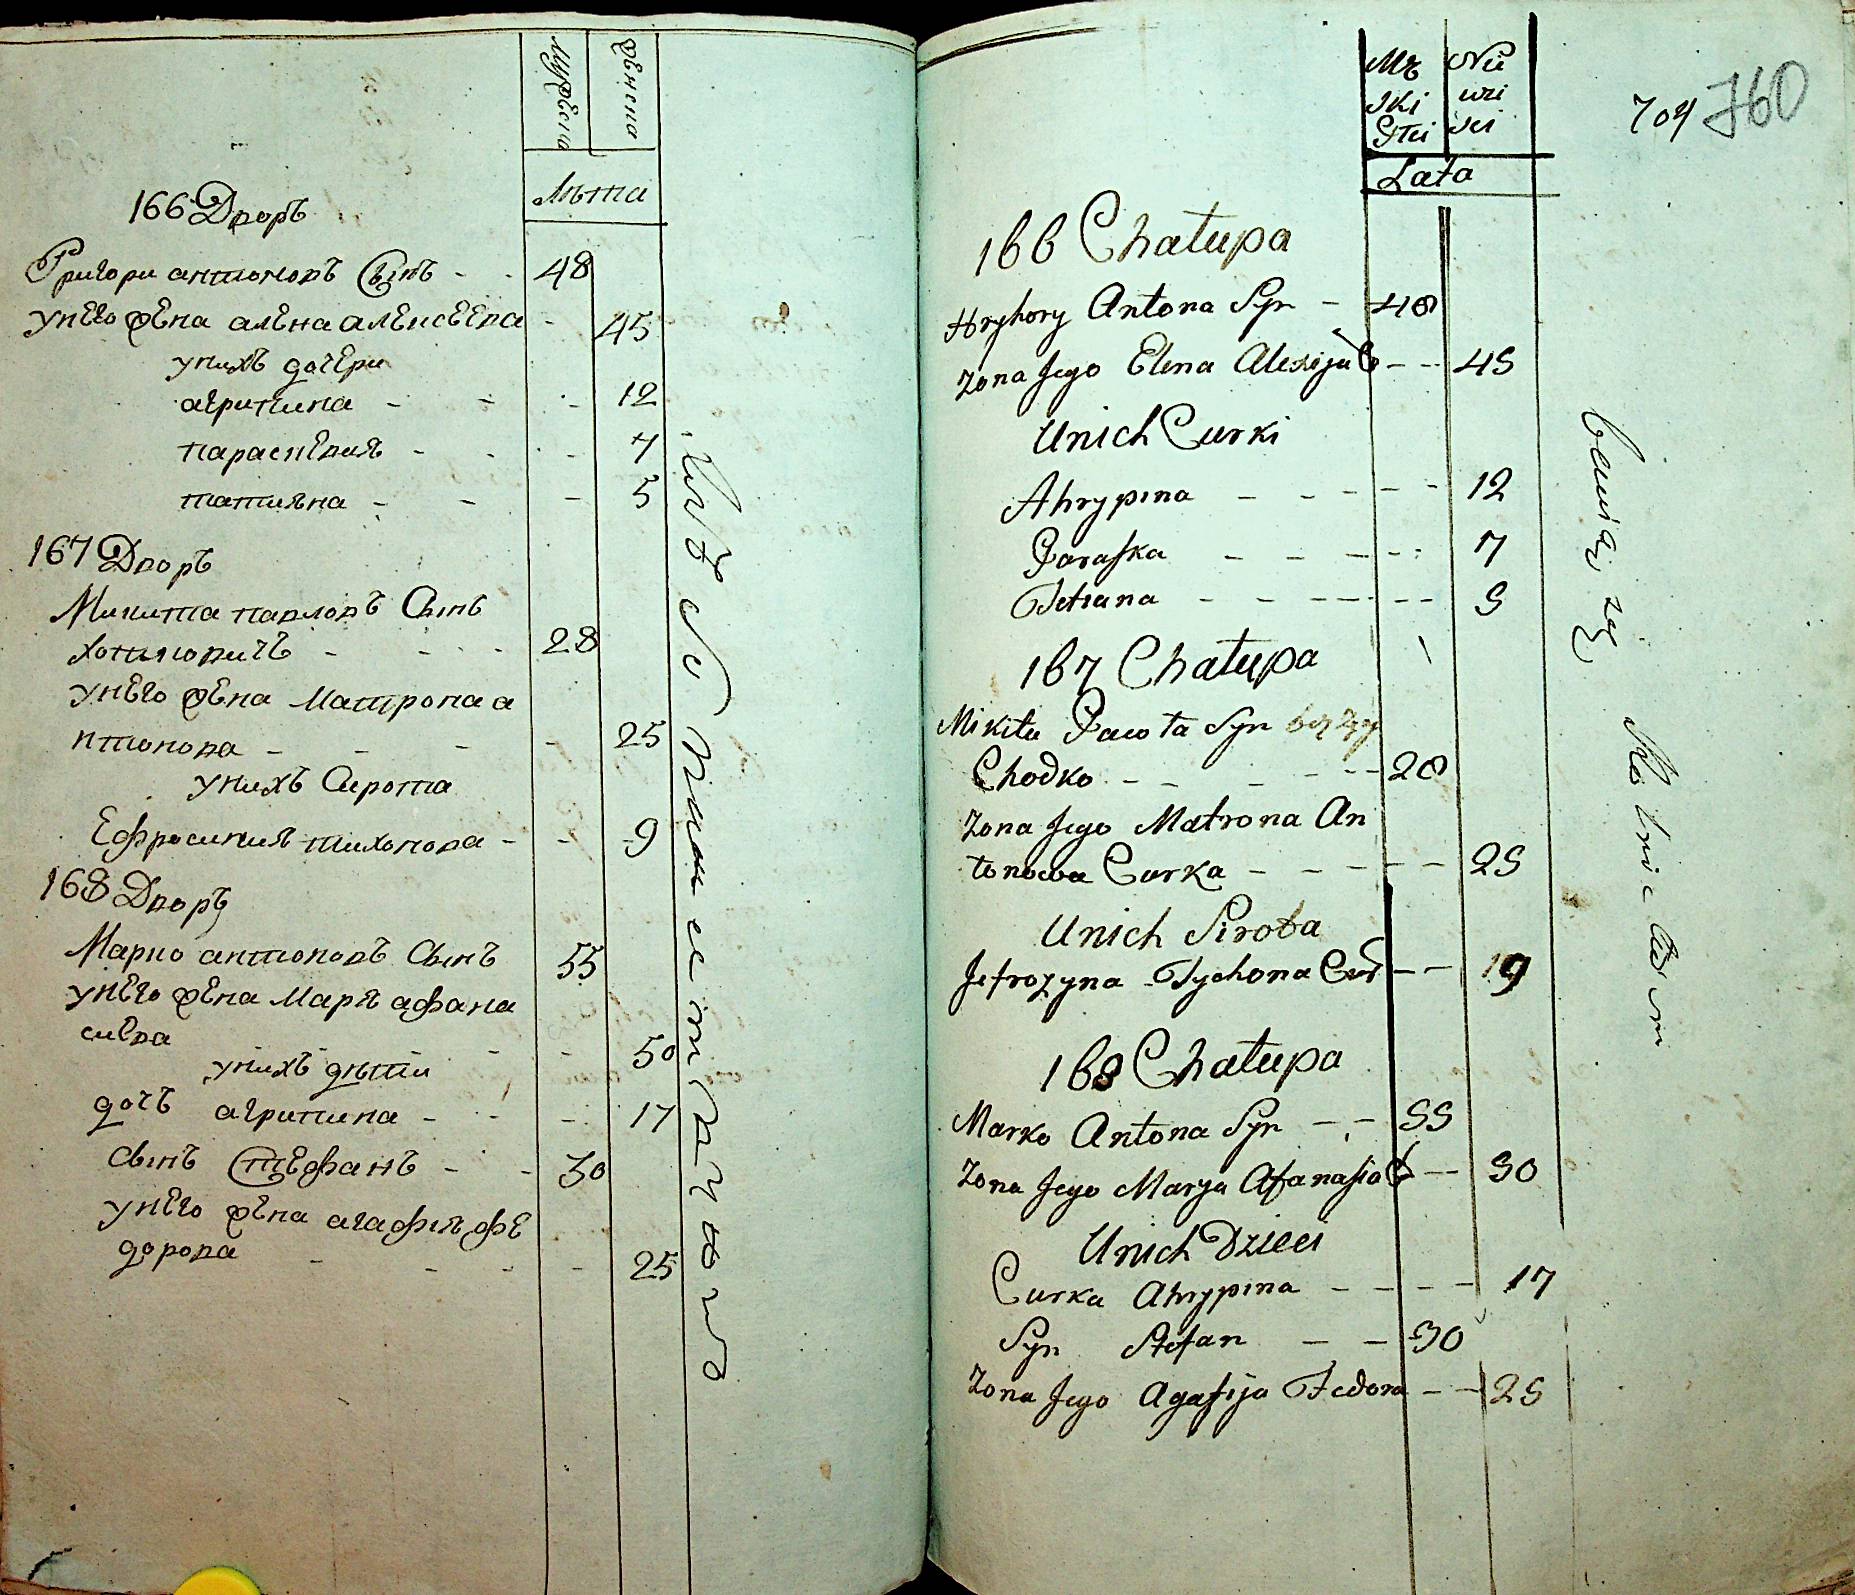 Мужеска
Женска
Лѣта
166 Дворъ
Григори антоновъ Сынъ - - 48
унего жена алена алексеева - 45
унихъ дочери
агрипина - - - - 12
параскевия - - - 7
татияна - - - 5
167 Дворъ
Микита павловъ Сынъ
хотиновичъ - - - - 28
унего жена Матрона а
нтонова - - - - 25
унихъ Сирота
Ефросиния тихонова - - 9
168 Дворъ
Марко антоновъ Сынъ 55
унего жена Маря афана
сиева - - 50
унихъ дѣти
дочъ агрипина - - - 17
Сынъ Стефанъ - - - 30
унего жена агафия фе
дорова - - - - 25
704 760
Mę Nie
ski wi
Płci sci
Lata
166 Chałupa
Hryhory Antona Syn - 48
Zona Jego Elena Alexija C - - 45
Unich Curki
Ahrypina - - - - - 12
Paraska - - - - - 7
Tetiana - - - - - - 5
167 Chałupa
Mikita Pawła Syn
Chodko - - - - - - 28
Zona Jego Matrona An
tonowa Curka - - - - - 25
Unich Sirota
Jefrozyna Tychona Cur - - 19
168 Chałupa
Marko Antona Syn - - - 55
Zona Jego Marya Afanasia C - - 50
Unich Dzieci
Curka Ahrypina - - - - 17
Syn Stefan - - - 30
Zona Jego Agafija Fedora - - 25